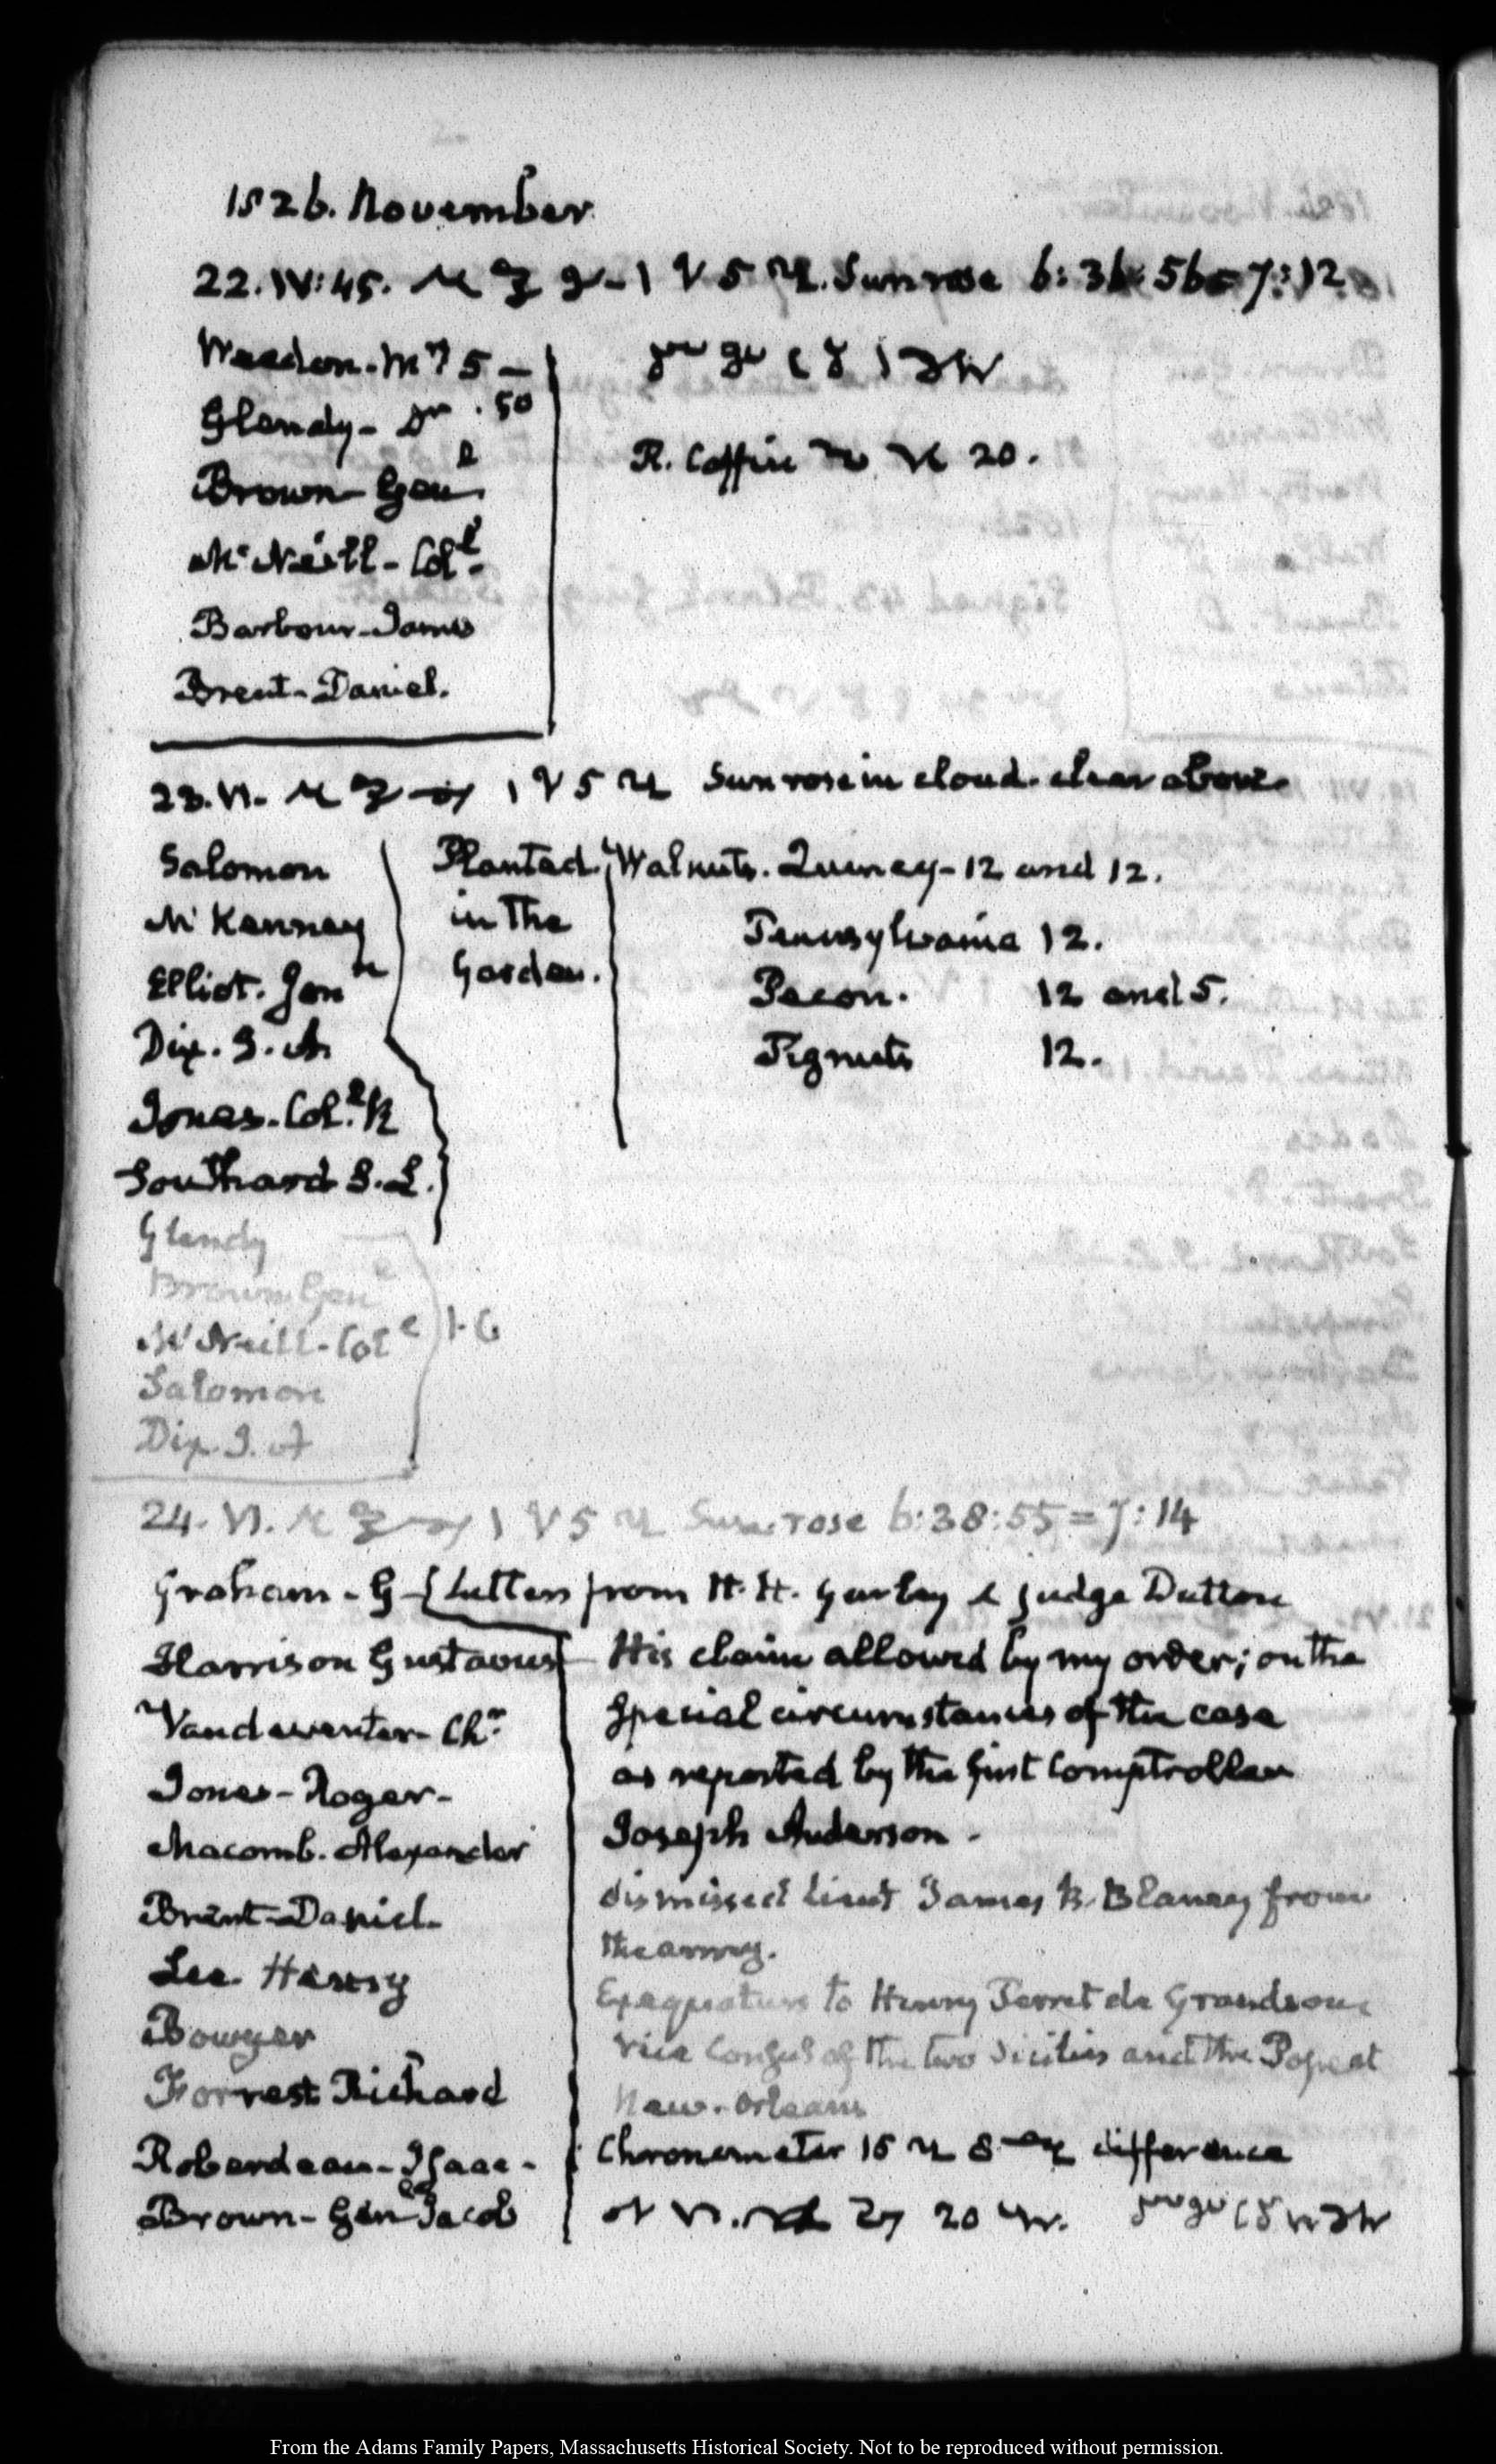 1826. November
22. IV:45. Sun rose 6: 36: 56 = 7: 12
Weedon. Mr 5 —
Glendy - Dr . 50
Brown - Genl
McNeill - Coll
Barbour - James
Brent - Daniel.
R. Coffin 20.
23. VI. Sun rose in cloud. clear above
Salomon
McKenney
Elliot. Jonn
Dix. J. A.
Jones. Coll. R
Southard S. L.
Planted
in the
Garden.
Walnuts. Quincy - 12 and 12.
Pennsylvania 12.
Pecon. 12 and 5.
Pignuts 12.
Glendy
Brown Genl
McNeill - Coll
Salomon
Dix J. A
1-6
24. VI. Sun rose 6: 38: 55 = 7: 14
Graham - G - Letters from H. H. Gurley & Judge Dutton
Harrison Gustavus
Vandeventer - Chr
Jones - Roger -
Macomb. Alexander
Brent - Daniel -
Lee Henry
Bowyer
Forrest Richard
Roberdeau - Isaac -
Brown - Genl Jacob
His claim allowed by my order; on the
special circumstances of the case
as reported by the first Comptroller
Joseph Anderson -
dismissed Lieut James R. Blaney from
the army.
Exequatur to Henry Perret de Grandson
Vice Consul of the two Sicilies and the Pope at
New-Orleans
Chronometer 16 8 difference
27 20
From the Adams Family Papers, Massachusetts Historical Society. Not to be reproduced without permission.